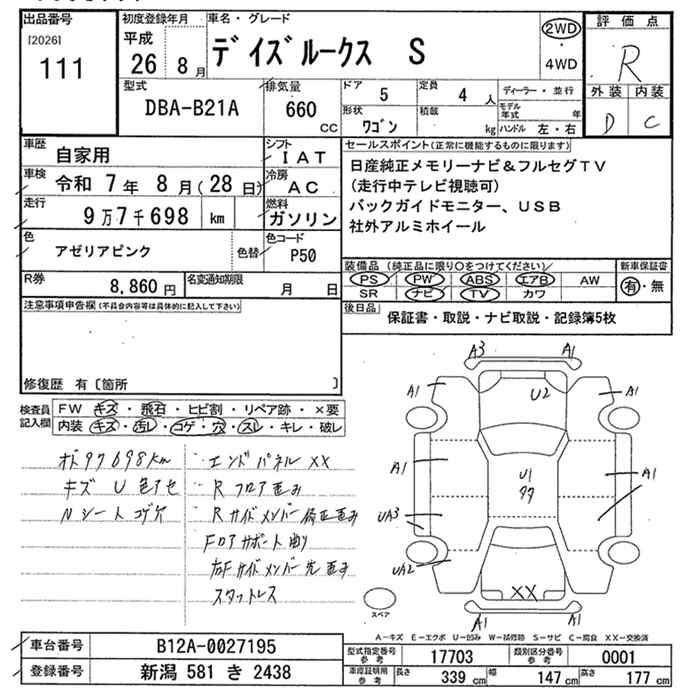 出品番号
[2026]
111
初度登録年月
平成
26年8月
車名・グレード
デイズルークス S
2WD
・
4WD
評価点
R
外装 内装
D C
型式
DBA-B21A
排気量
660
CC
ドア 5
定員 4人
形状 ワゴン
積載 kg
ディーラー・並行
モデル年式 年
ハンドル 左・右
車歴 自家用
シフト IAT
車検 令和 7年 8月(28日)
冷房 AC
走行 9万7千698 km
燃料 ガソリン
色 アゼリアピンク
色替
色コード P50
R券 8,860円
名変通知期限 月 日
セールスポイント(正常に機能するものに限ります)
日産純正メモリーナビ&フルセグTV
(走行中テレビ視聴可)
バックガイドモニター、USB
社外アルミホイール
装備品(純正品に限り○をつけてください)
PS PW ABS エアB AW
SR ナビ TV カワ
新車保証書
有・無
後日品
保証書・取説・ナビ取説・記録簿5枚
注意事項申告欄(不具合内容等は具体的に記入して下さい)
修復歴 有〔箇所 〕
検査員記入欄
FW キズ・飛石・ヒビ割・リペア跡・×要
内装 キズ・汚レ・コゲ・穴・スレ・キレ・破レ
オド97698km
キズ U 色アセ
Nシートコゲ穴
・エンドパネルXX
・Rフロア歪み
・Rサイドメンバー修正歪み
Fロアサポート曲り
右Fサイドメンバー先歪み
スタットレス
A3 A1
A1 U2 A1
A1 U1 A1
UA3
UA2
XX
A1 A1
スペア
A-キズ E-エクボ U-凹み W-補修跡 S-サビ C-腐食 XX-交換済
車台番号 B12A-0027195
登録番号 新潟 581 き 2438
型式指定番号 参考 17703
類別区分番号 参考 0001
車庫証明用 参考 長さ 339 cm 幅 147 cm 高さ 177 cm